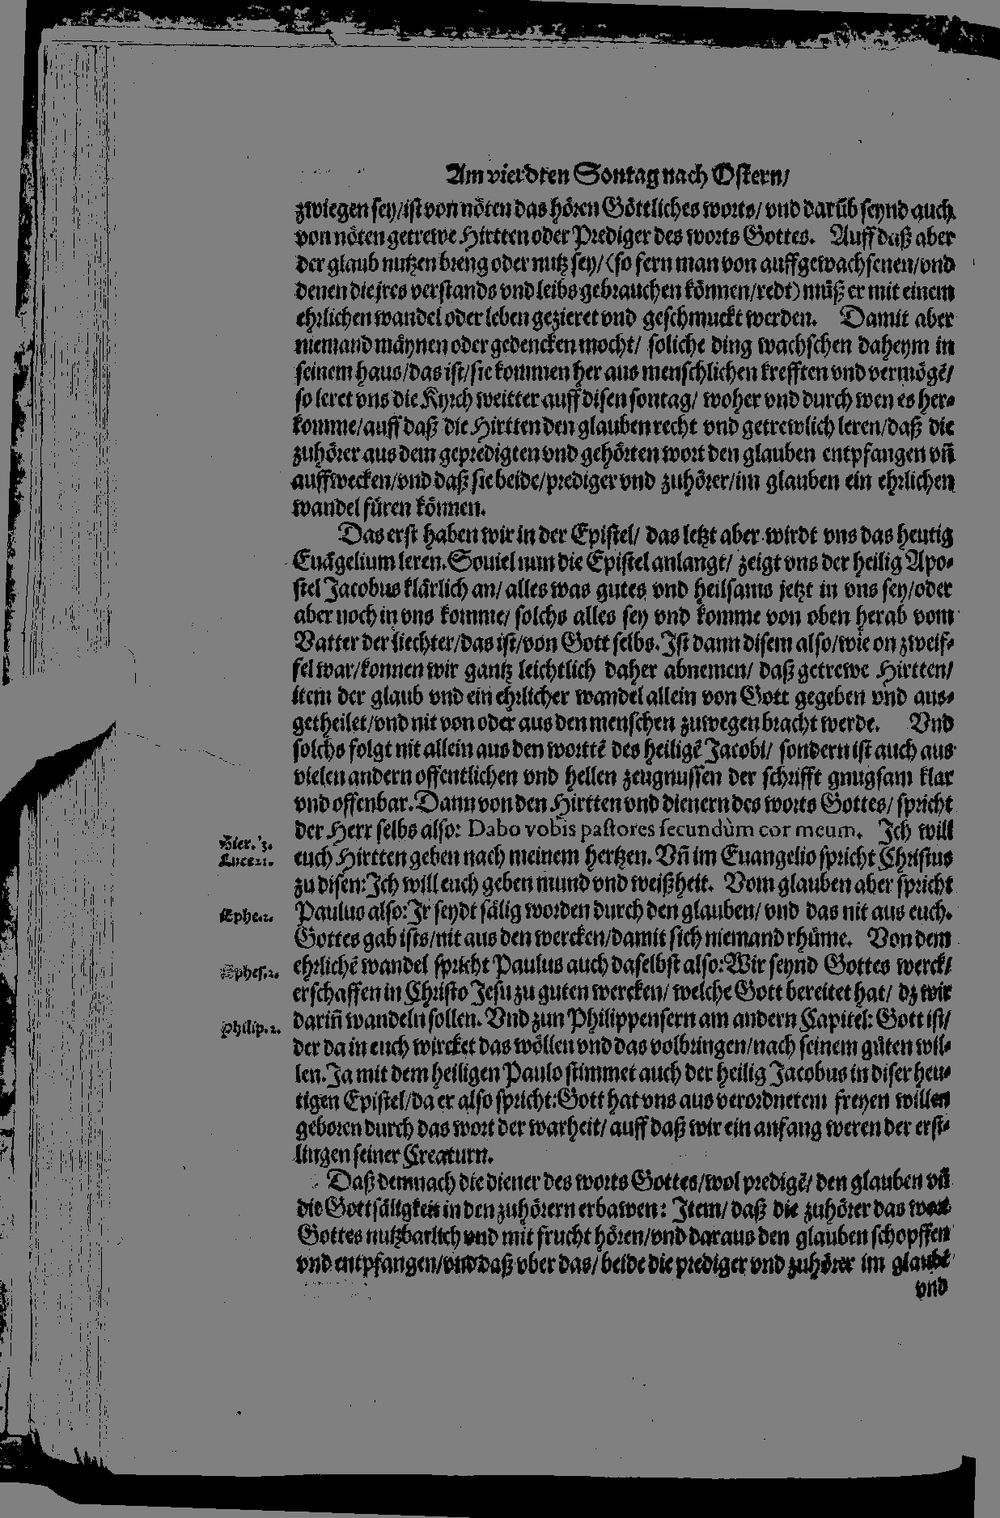 Am vierdten Sontag nach Ostern/
zwiegen sey/ist von nöten das hören Göttliches worts/ vnd darüb seynd auch
von nöten getrewe Hirtten oder Prediger des worts Gottes. Auff daß aber
der glaub nutzen breng oder nutz sey/(so fern man von auffgewachsenen/vnd
denen die jres verstands vnd leibs gebrauchen können/redt) müß er mit einem
ehrlichen wandel oder leben gezieret vnd geschmuckt werden. Damit aber
niemand mäynen oder gedencken mocht/ soliche ding wachschen daheym in
seinem haus/das ist/sie kommen her aus menschlichen krefften vnd vermögē/
so leret vns die Kyrch weitter auff disen sontag/ woher vnd durch wen es her-
komme/auff daß die Hirtten den glauben recht vnd getrewlich leren/daß die
zuhörer aus dem gepredigten vnd gehörten wort den glauben entpfangen vñ
auffwecken/vnd daß sie beide/prediger vnd zuhörer/im glauben ein ehrlichen
wandel füren können.
Das erst haben wir in der Epistel/ das letzt aber wirdt vns das heutig
Euāgelium leren. Souiel nun die Epistel anlangt/ zeigt vns der heilig Apo-
stel Jacobus klärlich an/ alles was gutes vnd heilsams jetzt in vns sey/oder
aber noch in vns komme/ solchs alles sey vnd komme von oben herab vom
Vatter der liechter/das ist/von Gott selbs. Ist dann disem also/wie on zweif-
fel war/konnen wir gantz leichtlich daher abnemen/ daß getrewe Hirtten/
item der glaub vnd ein ehrlicher wandel allein von Gott gegeben vnd aus-
getheilet/vnd nit von oder aus den menschen zuwegen bracht werde. Vnd
solchs folgt nit allein aus den worttē des heiligē Jacobi/ sondern ist auch aus
vielen andern offentlichen vnd hellen zeugnussen der schrifft gnugsam klar
vnd offenbar. Dann von den Hirtten vnd dienern des worts Gottes/ spricht
der Herr selbs also: Dabo vobis pastores secundùm cor meum. Ich will
Hier. 3.
euch Hirtten geben nach meinem hertzen. Vñ im Euangelio spricht Christus
Luce 21.
zu disen: Ich will euch geben mund vnd weißheit. Vom glauben aber spricht
Paulus also: Ir seydt sälig worden durch den glauben/ vnd das nit aus euch.
Ephe. 2.
Gottes gab ists/nit aus den wercken/damit sich niemand rhüme. Von dem
ehrlichē wandel spricht Paulus auch daselbst also: Wir seynd Gottes werck/
Ephes. 2.
erschaffen in Christo Jesu zu guten wercken/ welche Gott bereitet hat/ dz wir
dariñ wandeln sollen. Vnd zun Philippensern am andern Capitel: Gott ist/
Philip. 2.
der da in euch wircket das wöllen vnd das volbringen/nach seinem güten wil-
len. Ja mit dem heiligen Paulo stimmet auch der heilig Jacobus in diser heu-
tigen Epistel/da er also spricht: Gott hat vns aus verordnetem freyen willen
geboren durch das wort der warheit/ auff daß wir ein anfang weren der erst-
lingen seiner Creaturn.
Daß demnach die diener des worts Gottes/wol predigē/ den glauben vñ
die Gottsäligkeit in den zuhörern erbawen: Item/ daß die zuhörer das wort
Gottes nutzbarlich vnd mit frucht hören/vnd daraus den glauben schopffen
vnd entpfangen/vnd daß vber das/ beide die prediger vnd zuhörer im glaubē
vnd